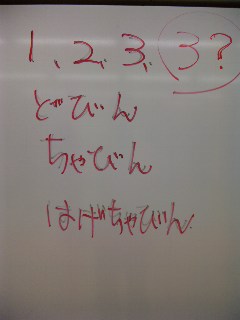 1, 2, 3, 3?
どびん
ちゃびん
はげちゃびん